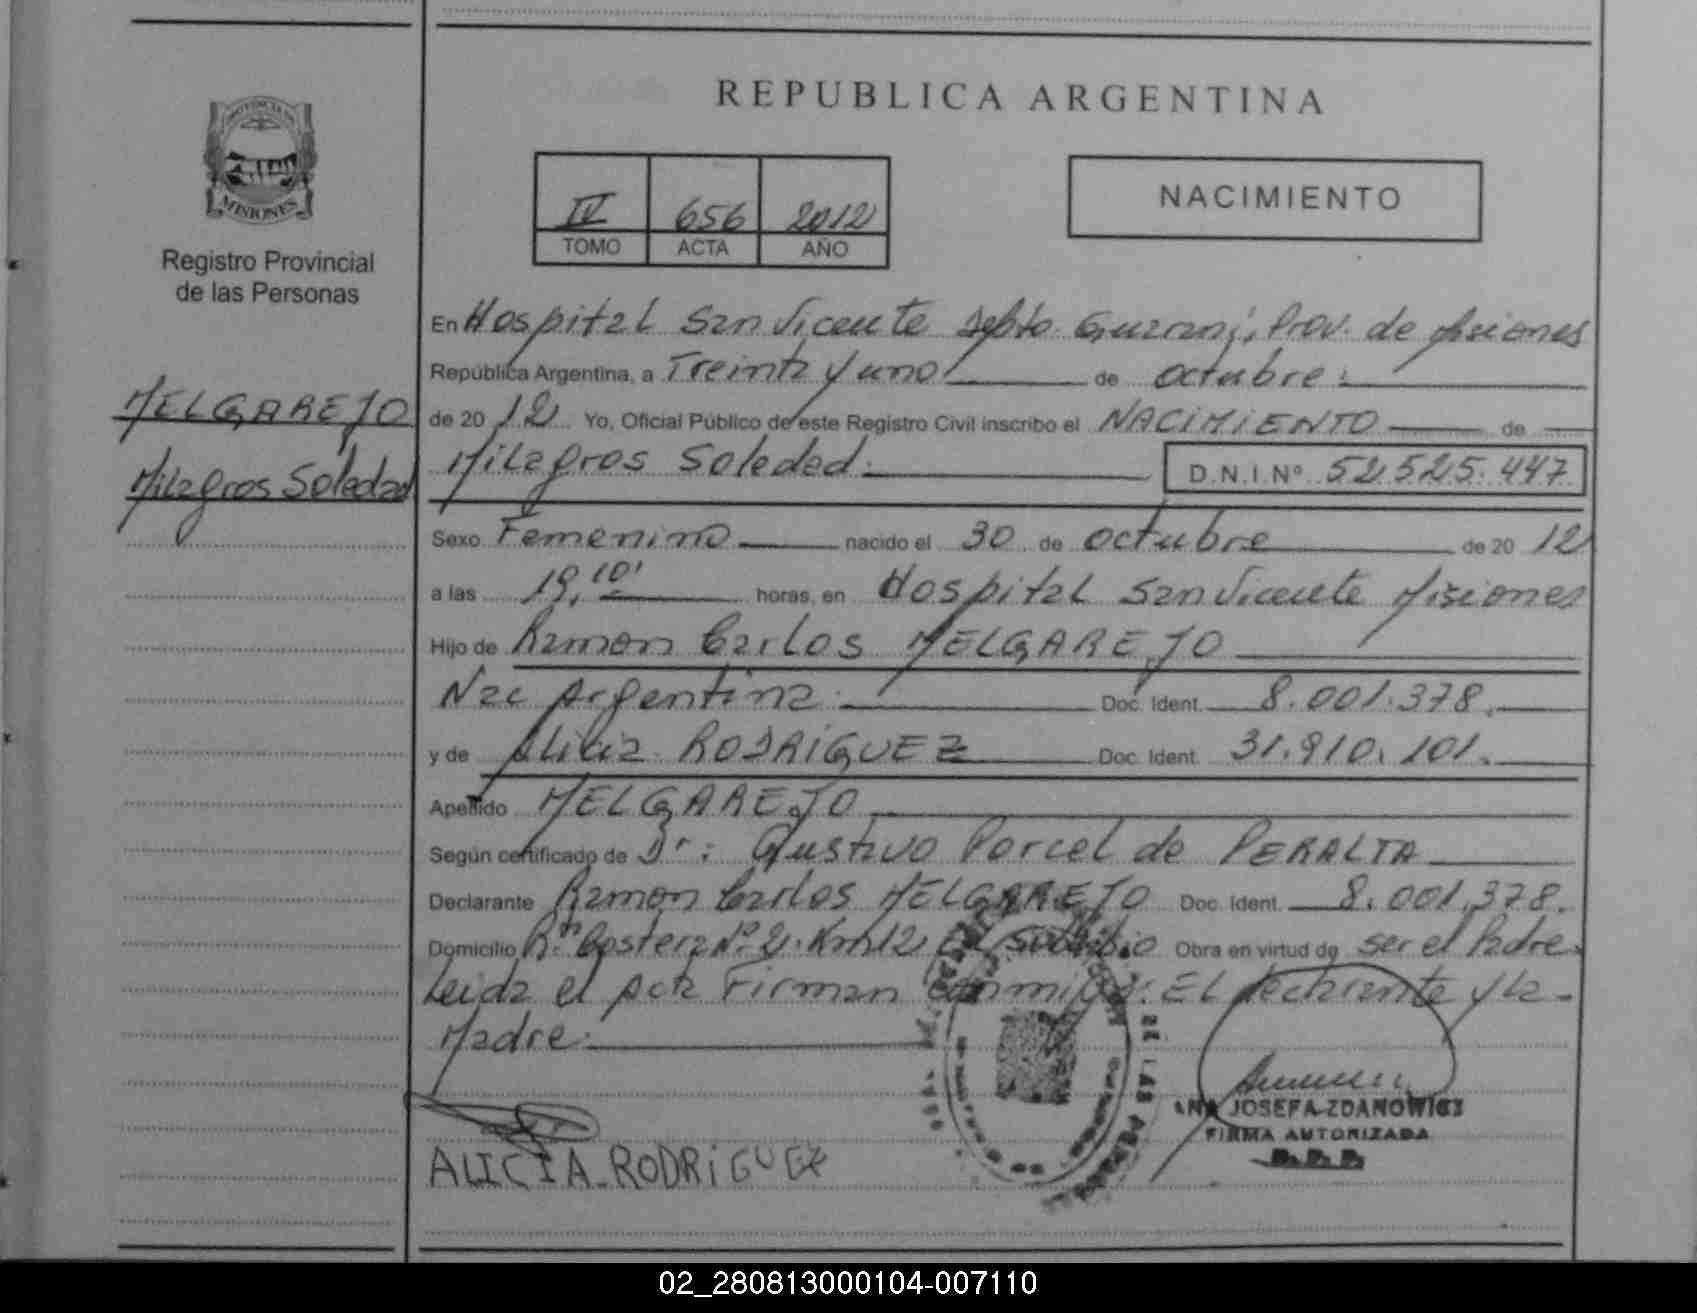 REPUBLICA ARGENTINA
PROVINCIA DE
MISIONES
Registro Provincial
de las Personas
IV 656 2012
TOMO ACTA AÑO
NACIMIENTO
MELGAREJO
Milagros Soledad
En Hospital San Vicente Depto. Guaraní, Prov. de Misiones
República Argentina, a Treinta y uno de octubre:
de 20 12 Yo, Oficial Público de este Registro Civil inscribo el NACIMIENTO de
Milagros Soledad. D.N.I.Nº 52.525.447
Sexo Femenino nacido el 30 de octubre de 20 12
a las 19,10' horas, en Hospital San Vicente Misiones
Hijo de Ramon Carlos MELGAREJO
Nac Argentina. Doc. Ident. 8.001.378.
y de Alicia RODRIGUEZ Doc. Ident. 31.910.101.
Apellido MELGAREJO
Según certificado de Dr: Gustavo Porcel de PERALTA
Declarante Ramon Carlos MELGAREJO Doc. Ident. 8.001.378.
Domicilio Rta Costera Nº 2. Km 12 El Soberbio Obra en virtud de ser el Padre.
Leida el acta Firman conmigo: El declarante y la
Madre:
ALICIA RODRIGUEZ
ANA JOSEFA ZDANOWICZ
FIRMA AUTORIZADA
DE LAS PERS
02_280813000104-007110